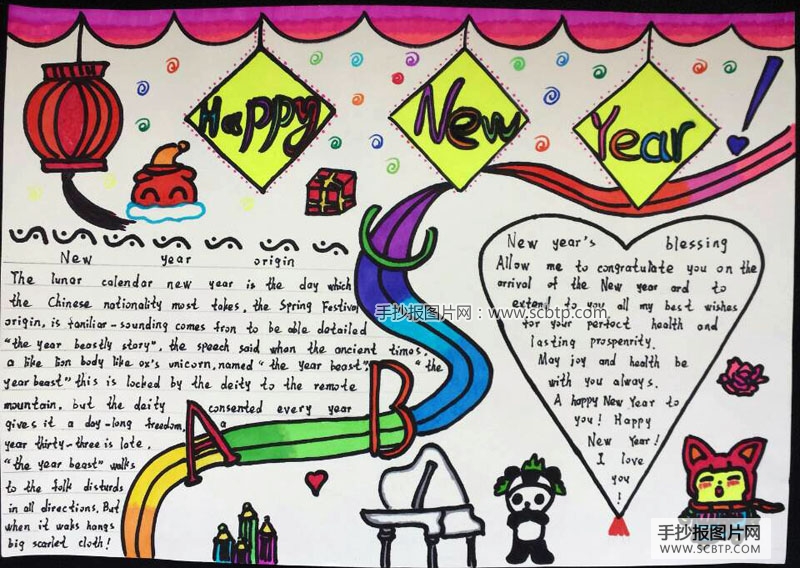 Happy New Year !
New year origin
The lunar calendar new year is the day which
the Chinese nationality most takes, the Spring Festival
origin, is familiar-sounding comes fron to be able detailed
"the year beastly story", the speech said when the ancient times,
a like lion body like ox's unicorn, named "the year beast", "the
year beast" this is locked by the deity to the remote
mountain, but the deity consented every year
gives it a day-long freedom, a
year thirty-three is late,
"the year beast" walks
to the folk disturds
in all directions. But
when it waks hangs
big scarlet cloth!
A B C
New year's blessing
Allow me to congratulate you on the
arrival of the New year and to
extend to you all my best wishes
for your perfect health and
lasting prospenrity.
May joy and health be
with you always.
A happy New Year to
you! Happy
New Year!
I love
you
!
手抄报图片网：www.scbtp.com
手抄报图片网
WWW.SCBTP.COM